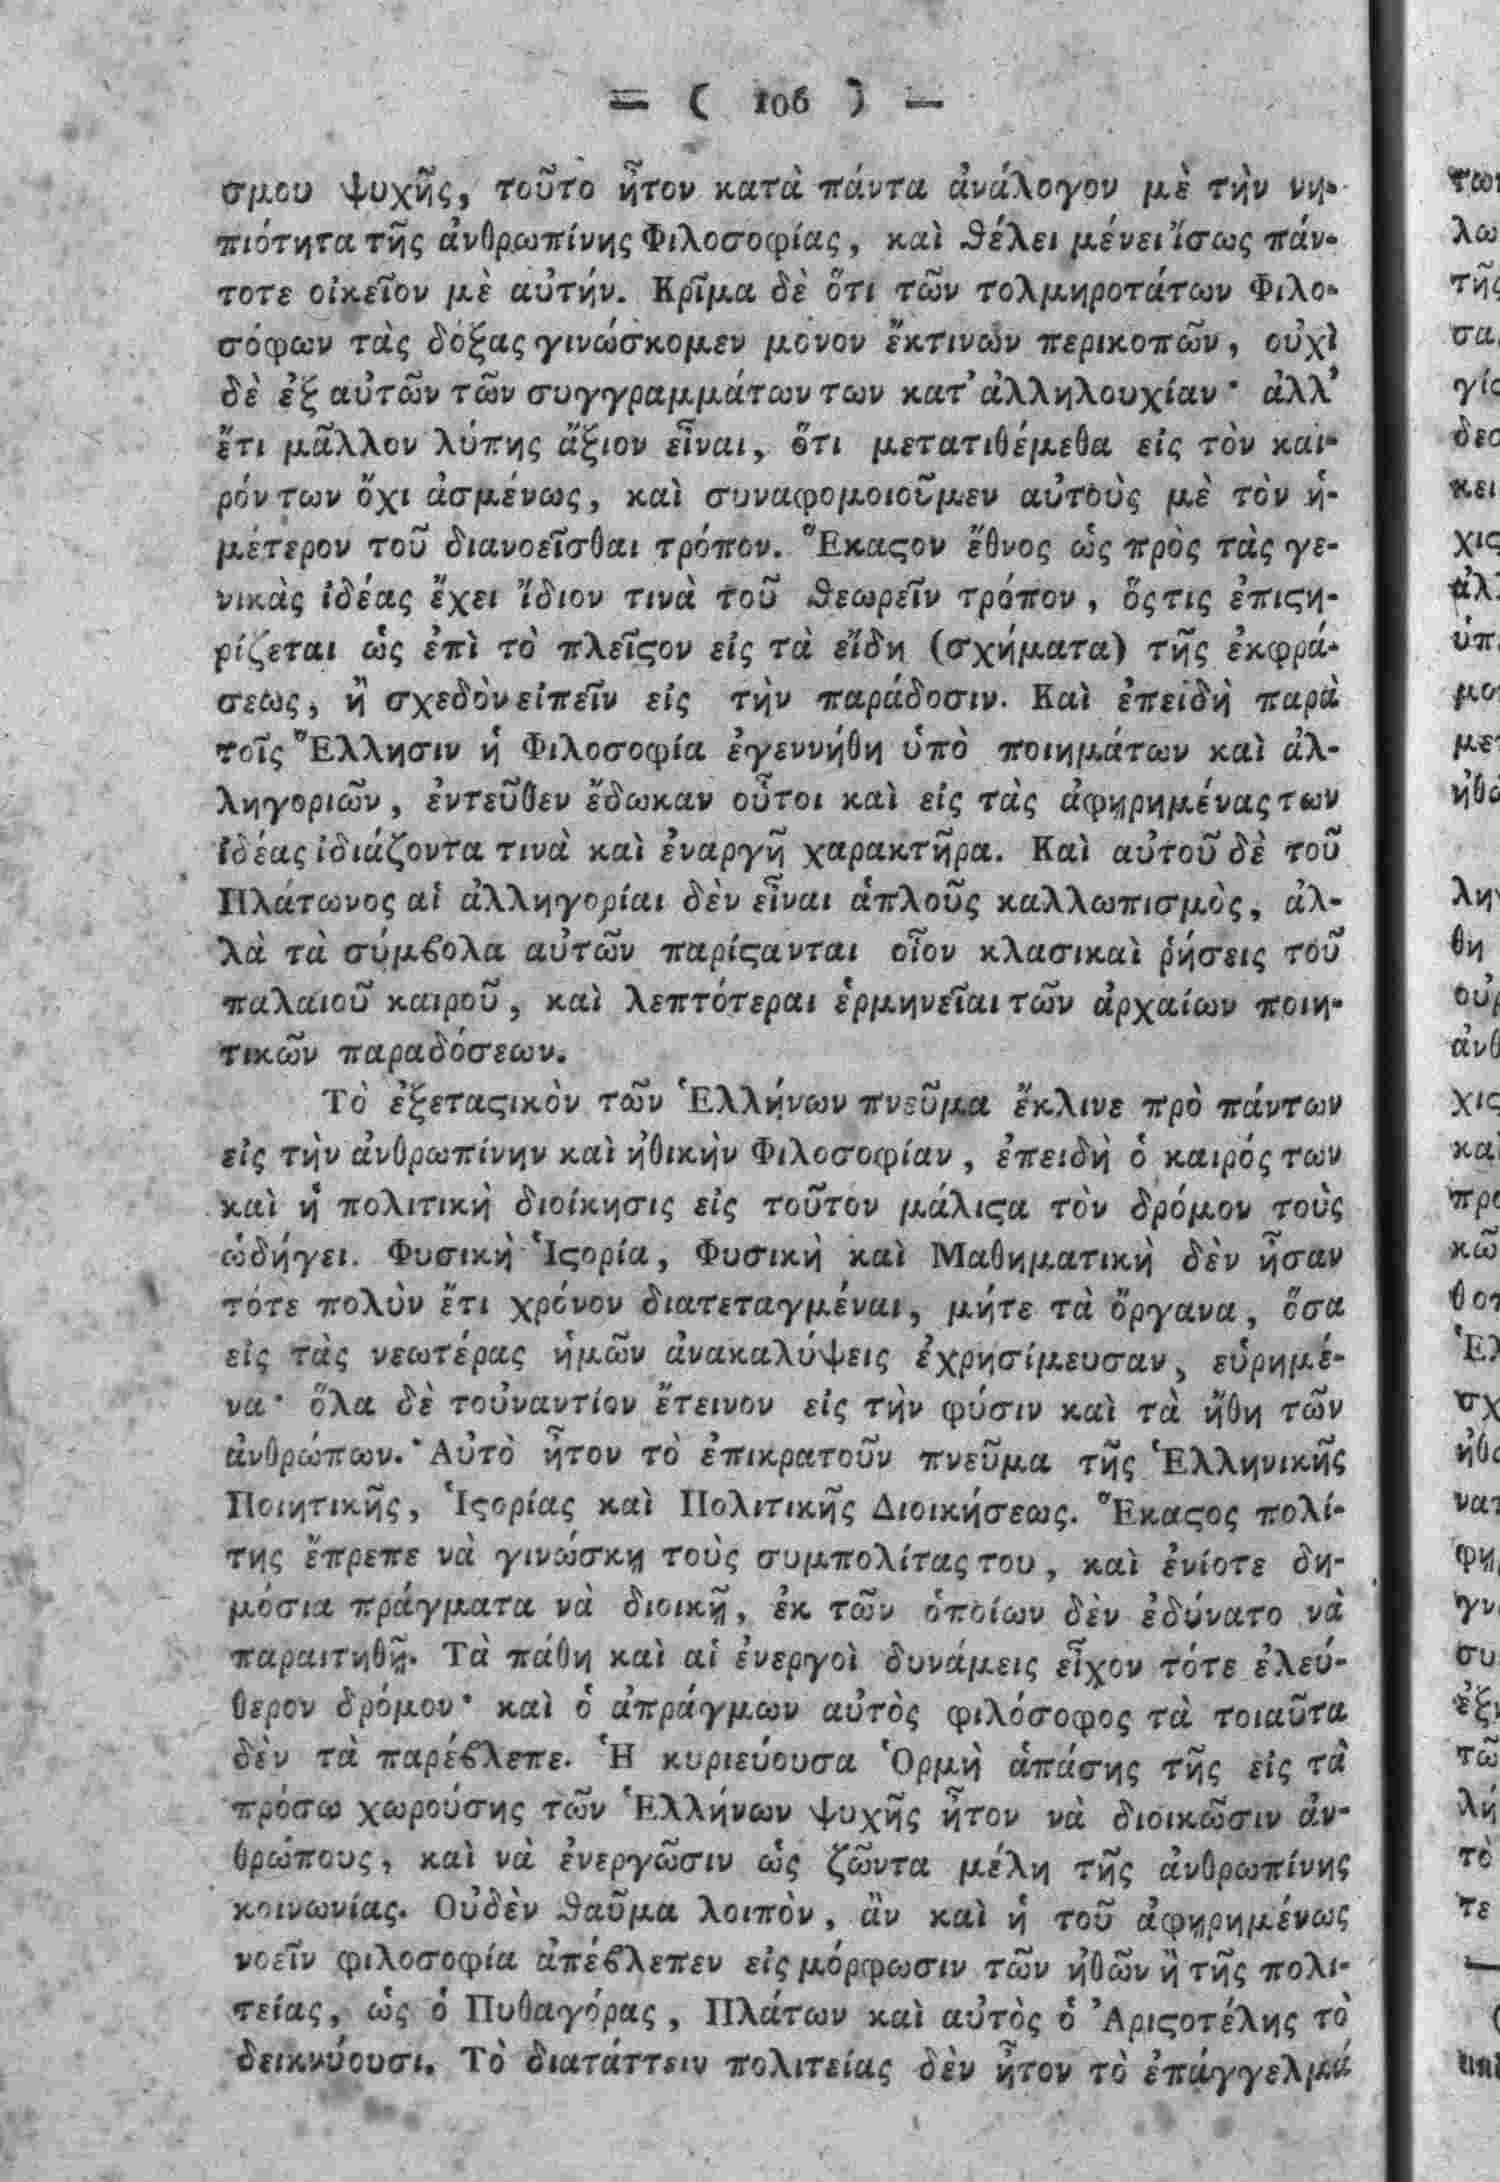 = ( 106 ) —
σμου ψυχῆς, τοῦτο ἦτον κατὰ πάντα ἀνάλογον μὲ τὴν νη-
πιότητα τῆς ἀνθρωπίνης Φιλοσοφίας, καὶ θέλει μένει ἴσως πάν-
τοτε οἰκεῖον μὲ αὐτήν. Κρῖμα δὲ ὅτι τῶν τολμηροτάτων Φιλο-
σόφων τὰς δόξας γινώσκομεν μόνον ἔκτινων περικοπῶν, οὐχὶ
δὲ ἐξ αὐτῶν τῶν συγγραμμάτων των κατ' ἀλληλουχίαν· ἀλλ'
ἔτι μᾶλλον λύπης ἄξιον εἶναι, ὅτι μετατιθέμεθα εἰς τὸν και-
ρόν των ὄχι ἀσμένως, καὶ συναφομοιοῦμεν αὐτοὺς μὲ τὸν ἡ-
μέτερον τοῦ διανοεῖσθαι τρόπον. Ἕκαϛον ἔθνος ὡς πρὸς τὰς γε-
νικὰς ἰδέας ἔχει ἴδιον τινὰ τοῦ θεωρεῖν τρόπον, ὅςτις ἐπιϛη-
ρίζεται ὡς ἐπὶ τὸ πλεῖϛον εἰς τὰ εἴδη (σχήματα) τῆς ἐκφρά-
σεως, ἢ σχεδὸν εἰπεῖν εἰς τὴν παράδοσιν. Καὶ ἐπειδὴ παρὰ
τοῖς Ἕλλησιν ἡ Φιλοσοφία ἐγεννήθη ὑπὸ ποιημάτων καὶ ἀλ-
ληγοριῶν, ἐντεῦθεν ἔδωκαν οὗτοι καὶ εἰς τὰς ἀφῃρημένας των
ἰδέας ἰδιάζοντα τινὰ καὶ ἐναργῆ χαρακτῆρα. Καὶ αὐτοῦ δὲ τοῦ
Πλάτωνος αἱ ἀλληγορίαι δὲν εἶναι ἁπλοῦς καλλωπισμὸς, ἀλ-
λὰ τὰ σύμϐολα αὐτῶν παρίϛανται οἷον κλασικαὶ ῥήσεις τοῦ
παλαιοῦ καιροῦ, καὶ λεπτότεραι ἑρμηνεῖαι τῶν ἀρχαίων ποιη-
τικῶν παραδόσεων.
Τὸ ἐξεταϛικὸν τῶν Ἑλλήνων πνεῦμα ἔκλινε πρὸ πάντων
εἰς τὴν ἀνθρωπίνην καὶ ἠθικὴν Φιλοσοφίαν, ἐπειδὴ ὁ καιρός των
καὶ ἡ πολιτικὴ διοίκησις εἰς τοῦτον μάλιϛα τὸν δρόμον τοὺς
ὡδήγει. Φυσικὴ Ἱϛορία, Φυσικὴ καὶ Μαθηματικὴ δὲν ἦσαν
τότε πολὺν ἔτι χρόνον διατεταγμέναι, μήτε τὰ ὄργανα, ὅσα
εἰς τὰς νεωτέρας ἡμῶν ἀνακαλύψεις ἐχρησίμευσαν, εὑρημέ-
να· ὅλα δὲ τοὐναντίον ἔτεινον εἰς τὴν φύσιν καὶ τὰ ἤθη τῶν
ἀνθρώπων. Αὐτὸ ἦτον τὸ ἐπικρατοῦν πνεῦμα τῆς Ἑλληνικῆς
Ποιητικῆς, Ἱϛορίας καὶ Πολιτικῆς Διοικήσεως. Ἕκαϛος πολί-
της ἔπρεπε νὰ γινώσκῃ τοὺς συμπολίτας του, καὶ ἐνίοτε δη-
μόσια πράγματα νὰ διοικῇ, ἐκ τῶν ὁποίων δὲν ἐδύνατο νὰ
παραιτηθῇ. Τὰ πάθη καὶ αἱ ἐνεργοὶ δυνάμεις εἶχον τότε ἐλεύ-
θερον δρόμον· καὶ ὁ ἀπράγμων αὐτὸς φιλόσοφος τὰ τοιαῦτα
δὲν τὰ παρέϐλεπε. Ἡ κυριεύουσα Ὁρμὴ ἁπάσης τῆς εἰς τὰ
πρόσω χωρούσης τῶν Ἑλλήνων ψυχῆς ἦτον νὰ διοικῶσιν ἀν-
θρώπους, καὶ νὰ ἐνεργῶσιν ὡς ζῶντα μέλη τῆς ἀνθρωπίνης
κοινωνίας. Οὐδὲν θαῦμα λοιπὸν, ἂν καὶ ἡ τοῦ ἀφῃρημένως
νοεῖν φιλοσοφία ἀπέϐλεπεν εἰς μόρφωσιν τῶν ἠθῶν ἢ τῆς πολι-
τείας, ὡς ὁ Πυθαγόρας, Πλάτων καὶ αὐτὸς ὁ Ἀριϛοτέλης τὸ
δεικνύουσι. Τὸ διατάττειν πολιτείας δὲν ἦτον τὸ ἐπάγγελμά